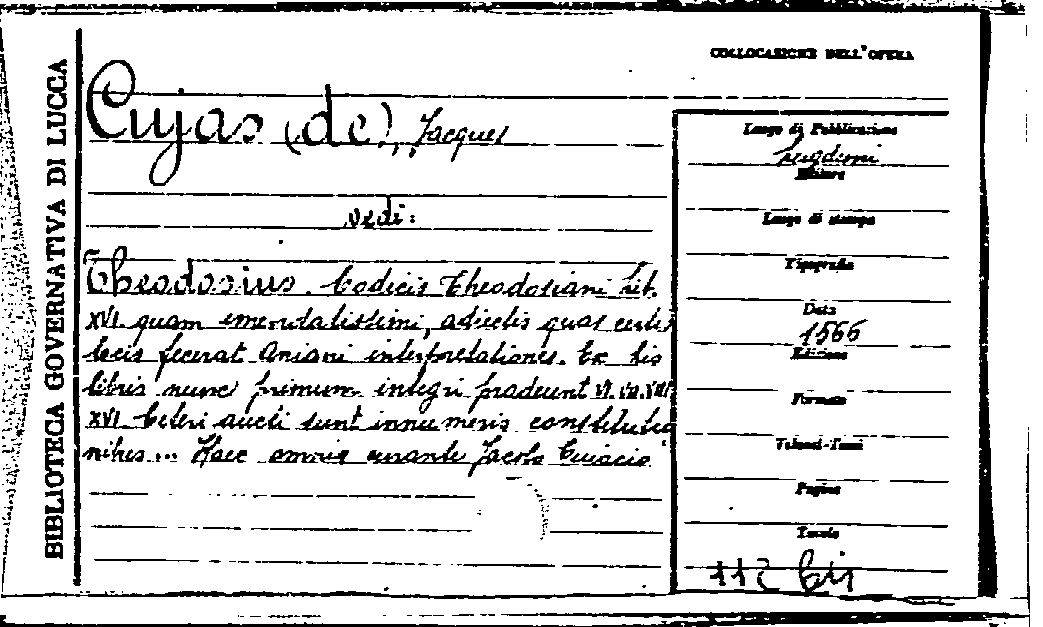 BIBLIOTECA GOVERNATIVA DI LUCCA
COLLOCAZIONE DELL'OPERA
Cujas (de), Jacques
vedi:
Theodosius Codicis Theodosiani Lib.
XVI. quam emendatissimi, adiectis quas certis
locis fecerat Aniani interpretationes. Ex his
libris nunc primum integri prodeunt VI. VII. VIII
XVI Ceteri aucti sunt innumeris constitutio
nibus... Haec omnia curante Jacobo Cuiacio
Luogo di Pubblicazione
Lugduni
Editore
Luogo di stampa
Tipografia
Data
1566
Edizione
Formato
Volumi-Tomi
Pagine
Tavole
112 bis